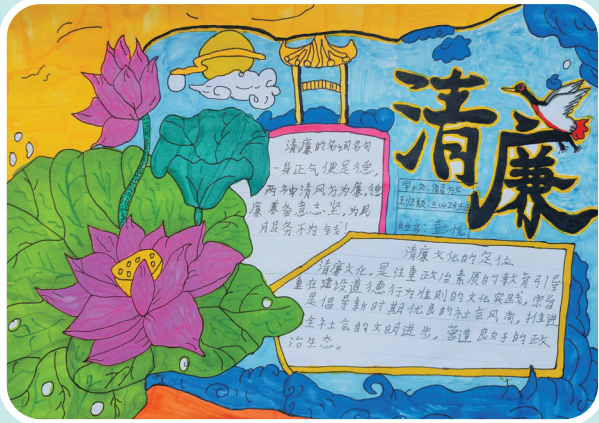 清廉
清廉的名词名句
一身正气便是德,
两袖清风方为廉,德
廉兼备意志坚,为民
服务不为钱!
清廉文化的定位
清廉文化,是注重政治素质的教育引导
重在建设道德行为准则的文化实践,宗旨
是倡导新时期优良的社会风尚,推进
全社会的文明进步,营造良好的政
治生态。